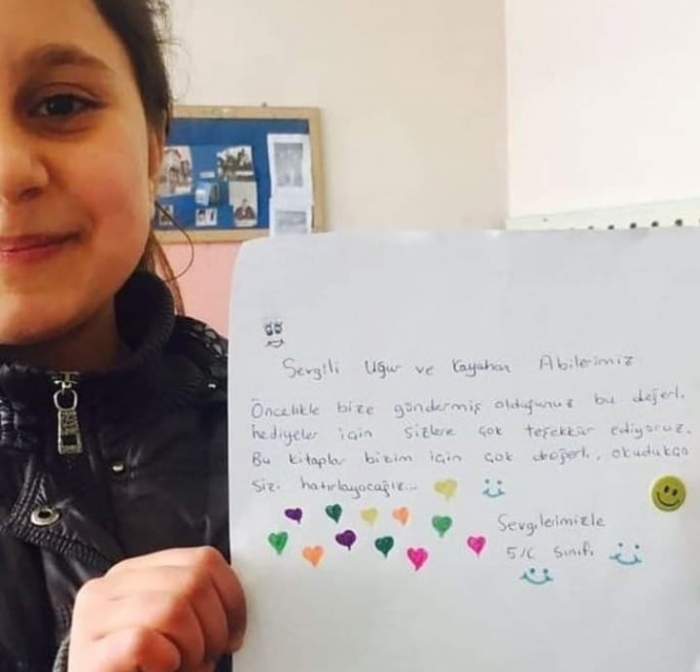 Sevgili Uğur ve Kayahan Abilerimiz
Öncelikle bize göndermiş olduğunuz bu değerli
hediyeler için sizlere çok teşekkür ediyoruz.
Bu kitaplar bizim için çok değerli, okudukça
sizi hatırlayacağız...
Sevgilerimizle
5/C Sınıfı